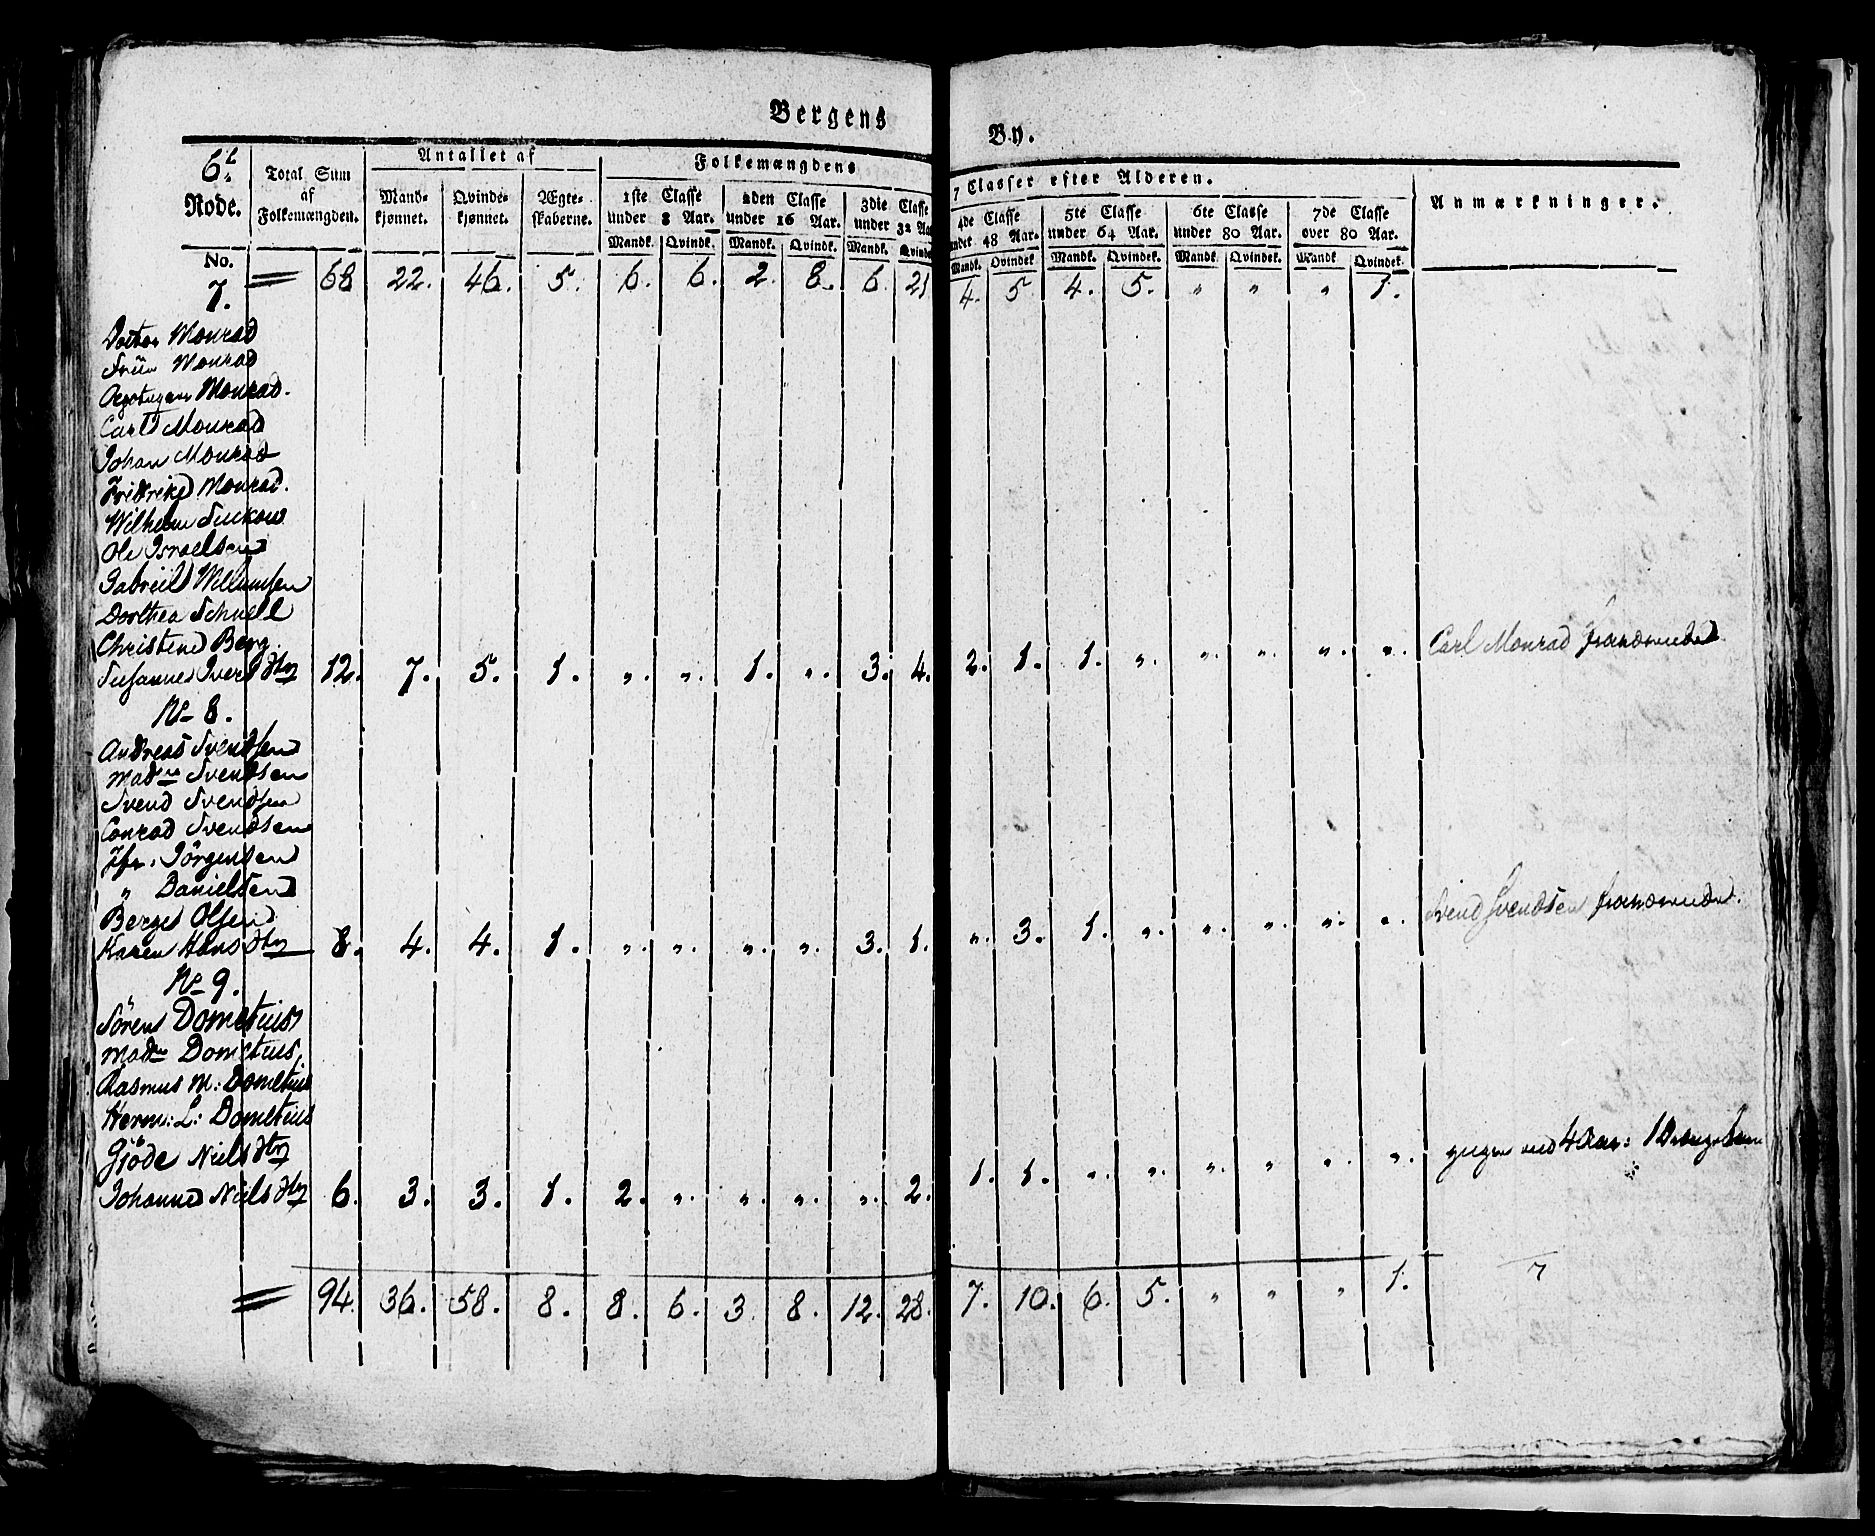 Bergens By.
6t Rode. Total Sum af Folkemængden. Antallet af Folkemængdens 7 Classer efter Alderen. Anmærkninger.
Mandkjønnet. Qvindekjønnet. Ægteskaberne. 1ste Classe under 8 Aar. 2den Classe under 16 Aar. 3die Classe under 32 Aar 4de Classe under 48 Aar. 5te Classe under 64 Aar. 6te Classe under 80 Aar. 7de Classe over 80 Aar.
Mandk. Qvindk. Mandk. Qvindk. Mandk. Qvindek Mandk. Qvindek Mandk. Qvindek. Mandk. Qvindek. Mandk Qvindek.
No. 68 22. 46. 5. 6. 6. 2. 8. 6. 21 4. 5 4. 5. " " " 1.
7.
Doctor Monrad
Frue Monrad
Monrad.
Carl Monrad
Johan Monrad
Fridrike Monrad.
Wilhelm Suckow
Ole Israelsen
Gabriel Willumsen
Dorthea Schnell
Christine Berg.
Susanne Ivers Dtr 12. 7. 5. 1. " " 1. " 3. 4. 2. 1. 1. " " " " " Carl Monrad fraværende
No 8.
Andreas Svendsen
Madme Svendsen
Svend Svendsen
Conrad Svendsen
Jfr. Jörgensen
" Danielsen
Berge Olsen
Karen Hans Dtr 8. 4. 4. 1. " " " " 3. 1. " 3. 1. " " " " " Svend Svendsen fraværende.
No 9.
Sören Dometius
Madme Dometius,
Rasmus M: Dometius
Herm: L: Dometius
Giöde Niels Dtr
Johanne Niels Dtr 6. 3. 3. 1. 2. " " " " 2. 1. 1. " " " " " " 4 Aar: 1
94. 36. 58. 8. 8. 6. 3. 8. 12. 28. 7. 10. 6. 5. " " " 1.